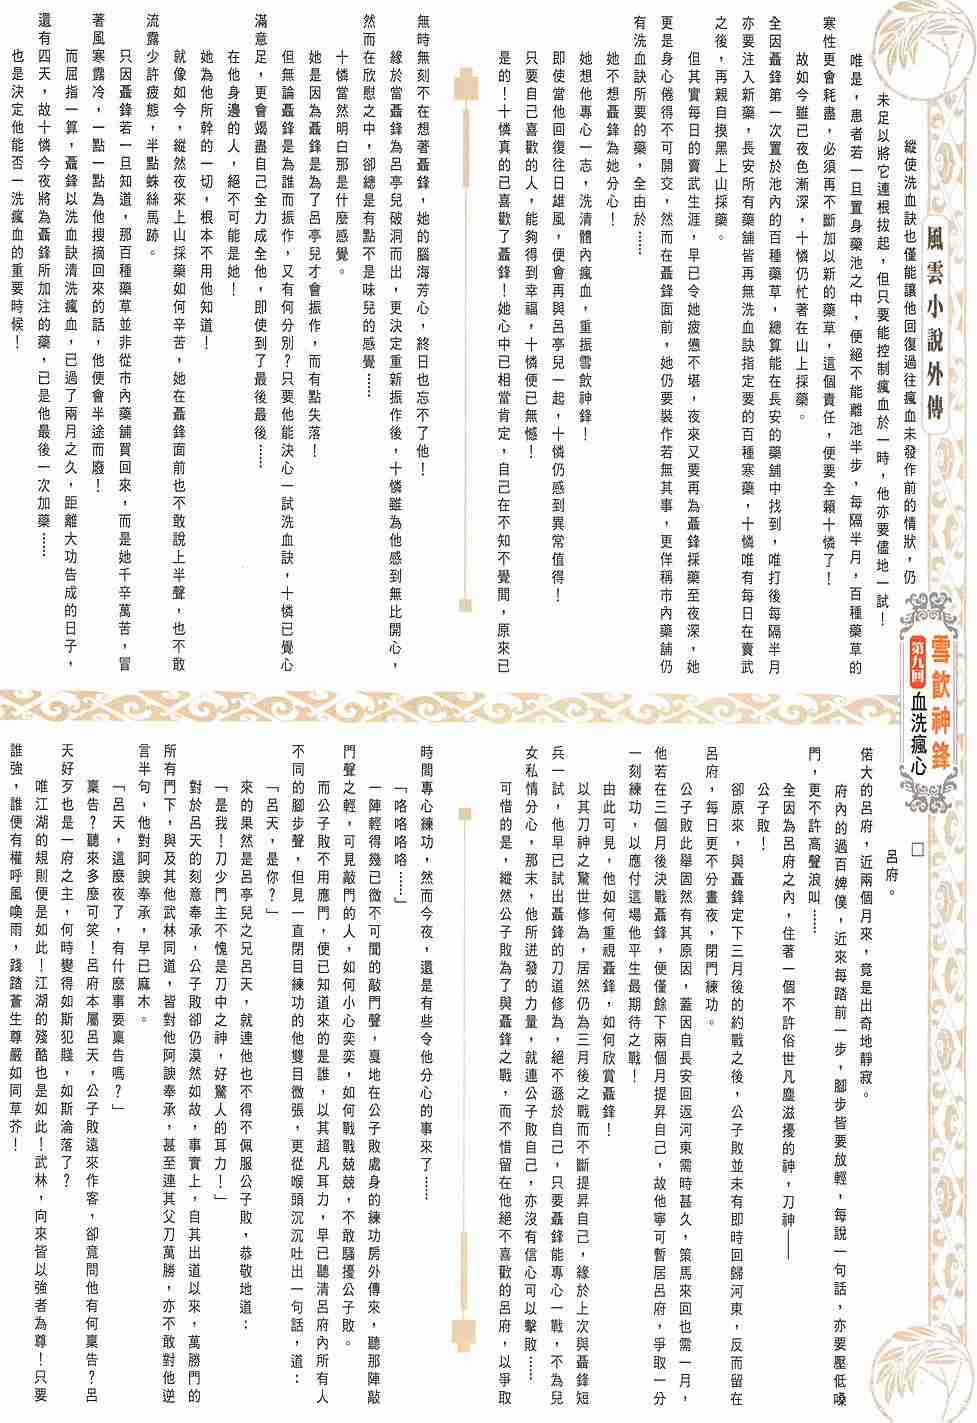 風雲小說外傳
雪飲神鋒
第九回
血洗瘋心
縱使洗血訣也僅能讓他回復過往瘋血未發作前的情狀，仍
未足以將它連根拔起，但只要能控制瘋血於一時，他亦要儘地一試！
唯是，患者若一旦置身藥池之中，便絕不能離池半步，每隔半月，百種藥草的
寒性更會耗盡，必須再不斷加以新的藥草，這個責任，便要全賴十憐了！
故如今雖已夜色漸深，十憐仍忙著在山上採藥。
全因聶鋒第一次置於池內的百種藥草，總算能在長安的藥舖中找到，唯打後每隔半月
亦要注入新藥，長安所有藥舖皆再無洗血訣指定要的百種寒藥，十憐唯有每日在賣武
之後，再親自摸黑上山採藥。
但其實每日的賣武生涯，早已令她疲憊不堪，夜來又要再為聶鋒採藥至夜深，她
更是身心倦得不可開交，然而在聶鋒面前，她仍要裝作若無其事，更佯稱市內藥舖仍
有洗血訣所要的藥，全由於……
她不想聶鋒為她分心！
她想他專心一志，洗清體內瘋血，重振雪飲神鋒！
即使當他回復往日雄風，便會再與呂亭兒一起，十憐仍感到異常值得！
只要自己喜歡的人，能夠得到幸福，十憐便已無憾！
是的！十憐真的已喜歡了聶鋒！她心中已相當肯定，自己在不知不覺間，原來已
無時無刻不在想著聶鋒，她的腦海芳心，終日也忘不了他！
緣於當聶鋒為呂亭兒破洞而出，更決定重新振作後，十憐雖為他感到無比開心，
然而在欣慰之中，卻總是有點不是味兒的感覺……
十憐當然明白那是什麼感覺。
她是因為聶鋒是為了呂亭兒才會振作，而有點失落！
但無論聶鋒是為誰而振作，又有何分別？只要他能決心一試洗血訣，十憐已覺心
滿意足，更會竭盡自己全力成全他，即使到了最後最後……
在他身邊的人，絕不可能是她！
她為他所幹的一切，根本不用他知道！
就像如今，縱然夜來上山採藥如何辛苦，她在聶鋒面前也不敢說上半聲，也不敢
流露少許疲態，半點蛛絲馬跡。
只因聶鋒若一旦知道，那百種藥草並非從市內藥舖買回來，而是她千辛萬苦，冒
著風寒露冷，一點一點為他搜摘回來的話，他便會半途而廢！
而屈指一算，聶鋒以洗血訣清洗瘋血，已過了兩月之久，距離大功告成的日子，
還有四天，故十憐今夜將為聶鋒所加注的藥，已是他最後一次加藥……
也是決定他能否一洗瘋血的重要時候！
□
呂府。
偌大的呂府，近兩個月來，竟是出奇地靜寂。
府內的過百婢僕，近來每踏前一步，腳步皆要放輕，每說一句話，亦要壓低嗓
門，更不許高聲浪叫……
全因為呂府之內，住著一個不許俗世凡塵滋擾的神，刀神——
公子敗！
卻原來，與聶鋒定下三月後的約戰之後，公子敗並未有即時回歸河東，反而留在
呂府，每日更不分晝夜，閉門練功。
公子敗此舉固然有其原因，蓋因自長安回返河東需時甚久，策馬來回也需一月，
他若在三個月後決戰聶鋒，便僅餘下兩個月提昇自己，故他寧可暫居呂府，爭取一分
一刻練功，以應付這場他平生最期待之戰！
由此可見，他如何重視聶鋒，如何欣賞聶鋒！
以其刀神之驚世修為，居然仍為三月後之戰而不斷提昇自己，緣於上次與聶鋒短
兵一試，他早已試出聶鋒的刀道修為，絕不遜於自己，只要聶鋒能專心一戰，不為兒
女私情分心，那末，他所迸發的力量，就連公子敗自己，亦沒有信心可以擊敗……
可惜的是，縱然公子敗為了與聶鋒之戰，而不惜留在他絕不喜歡的呂府，以爭取
時間專心練功，然而今夜，還是有些令他分心的事來了……
「咯咯咯咯……」
一陣輕得幾已微不可聞的敲門聲，戛地在公子敗處身的練功房外傳來，聽那陣敲
門聲之輕，可見敲門的人，如何小心奕奕，如何戰戰兢兢，不敢騷擾公子敗。
而公子敗不用應門，便已知道來的是誰，以其超凡耳力，早已聽清呂府內所有人
不同的腳步聲，但見一直閉目練功的他雙目微張，更從喉頭沉沉吐出一句話，道：
「呂天，是你？」
來的果然是呂亭兒之兄呂天，就連他也不得不佩服公子敗，恭敬地道：
「是我！刀少門主不愧是刀中之神，好驚人的耳力！」
對於呂天的刻意奉承，公子敗卻仍漠然如故，事實上，自其出道以來，萬勝門的
所有門下，與及其他武林同道，皆對他阿諛奉承，甚至連其父刀萬勝，亦不敢對他逆
言半句，他對阿諛奉承，早已麻木。
「呂天，這麼夜了，有什麼事要稟告嗎？」
稟告？聽來多麼可笑！呂府本屬呂天，公子敗遠來作客，卻竟問他有何稟告？呂
天好歹也是一府之主，何時變得如斯犯賤，如斯淪落了？
唯江湖的規則便是如此！江湖的殘酷也是如此！武林，向來皆以強者為尊！只要
誰強，誰便有權呼風喚雨，踐踏蒼生尊嚴如同草芥！